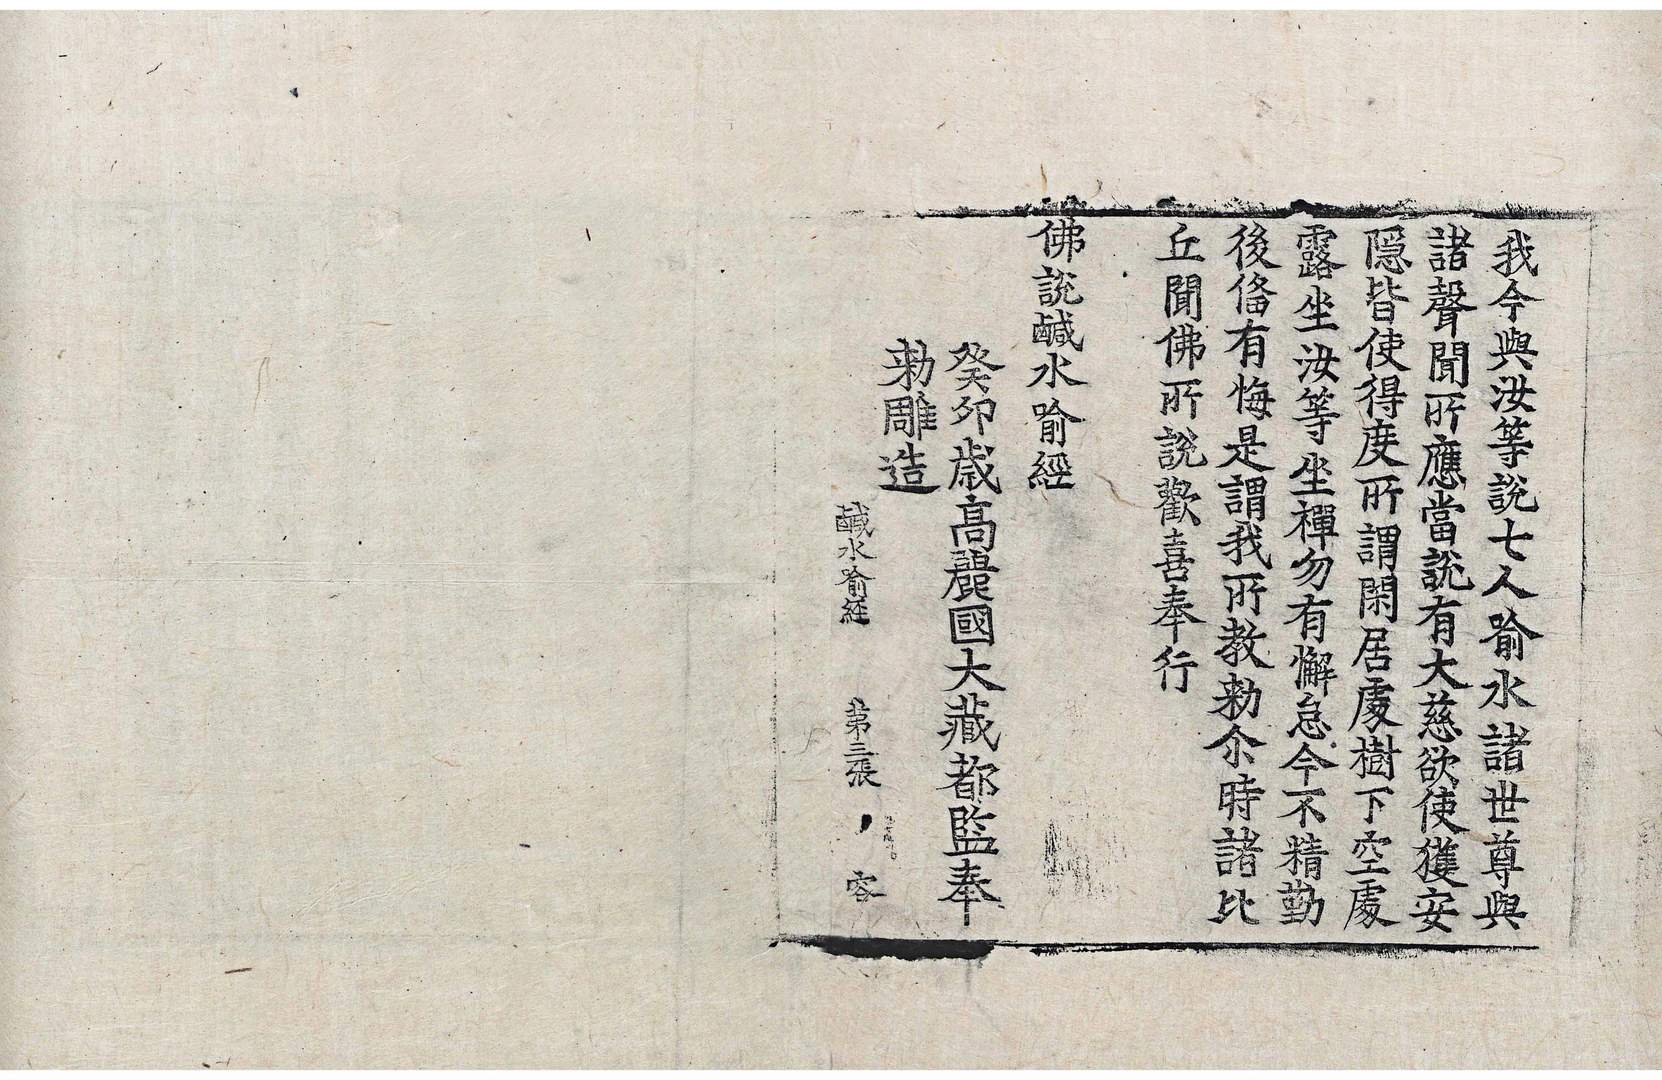 我今與汝等說七人喻水諸世尊與
諸聲聞所應當說有大慈欲使獲安
隱皆使得度所謂閑居處樹下空處
露坐汝等坐禪勿有懈怠今不精勤
後俻有悔是謂我所教勑尒時諸比
丘聞佛所說歡喜奉行
佛說鹹水喻經
癸卯歲高麗國大藏都監奉
勑雕造
鹹水喻経 第三張 容